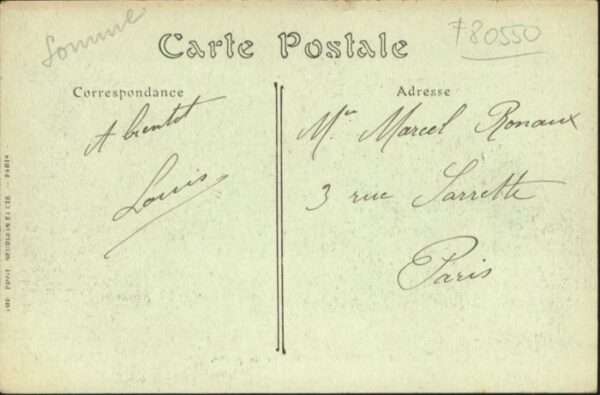 Somme
F80550
Carte Postale
Correspondance
Adresse
A bientot
Louis
Mr Marcel Ronaux
3 rue Sarrette
Paris